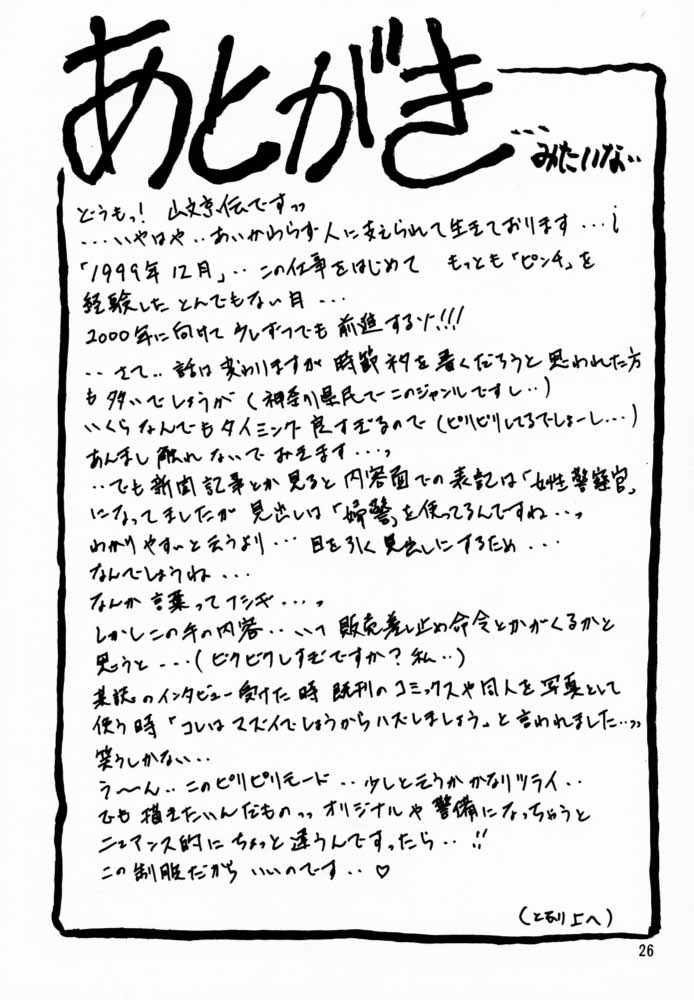 あとがき
…みたいな..
どうもっ! 山文京伝ですッ
…いやはや‥あいかわらず人に支えられて生きております…
「1999年12月」‥この仕事をはじめて もっとも「ピンチ」を
経験したとんでもない月…
2000年に向けて少しずつでも前進するゾ!!!
‥さて‥話は変わりますが時節ネタを書くだろうと思われた方
も多いでしょうが(神奈川県民で‥このジャンルですし‥)
いくらなんでもタイミング良すぎるので(ピリピリしてるでしょーし…)
あんまし触れないでおきます…ッ
‥でも新聞記事とか見ると内容面での表記は「女性警察官」
になってましたが見出しは「婦警」を使ってるんですね…ッ
わかりやすいと云うより…目を引く見出しにするため…
なんでしょうね…
なんか言葉ってフシギ…ッ
しかしこの手の内容‥いつ販売差し止め命令とかがくるかと
思うと…(ビクビクしすぎですか?私‥)
某誌のインタビュー受けた時既刊のコミックスや同人を写真として
使う時「コレはマズイでしょうからハズしましょう」と言われました‥ッ
笑うしかない‥
う〜ん‥このピリピリモード‥少しと云うかかなりツライ‥
でも描きたいんだものッオリジナルや警備になっちゃうと
ニュアンス的にちょっと違うんですったら‥!!
この制服だから いいのです‥♡
(となり上へ)
26